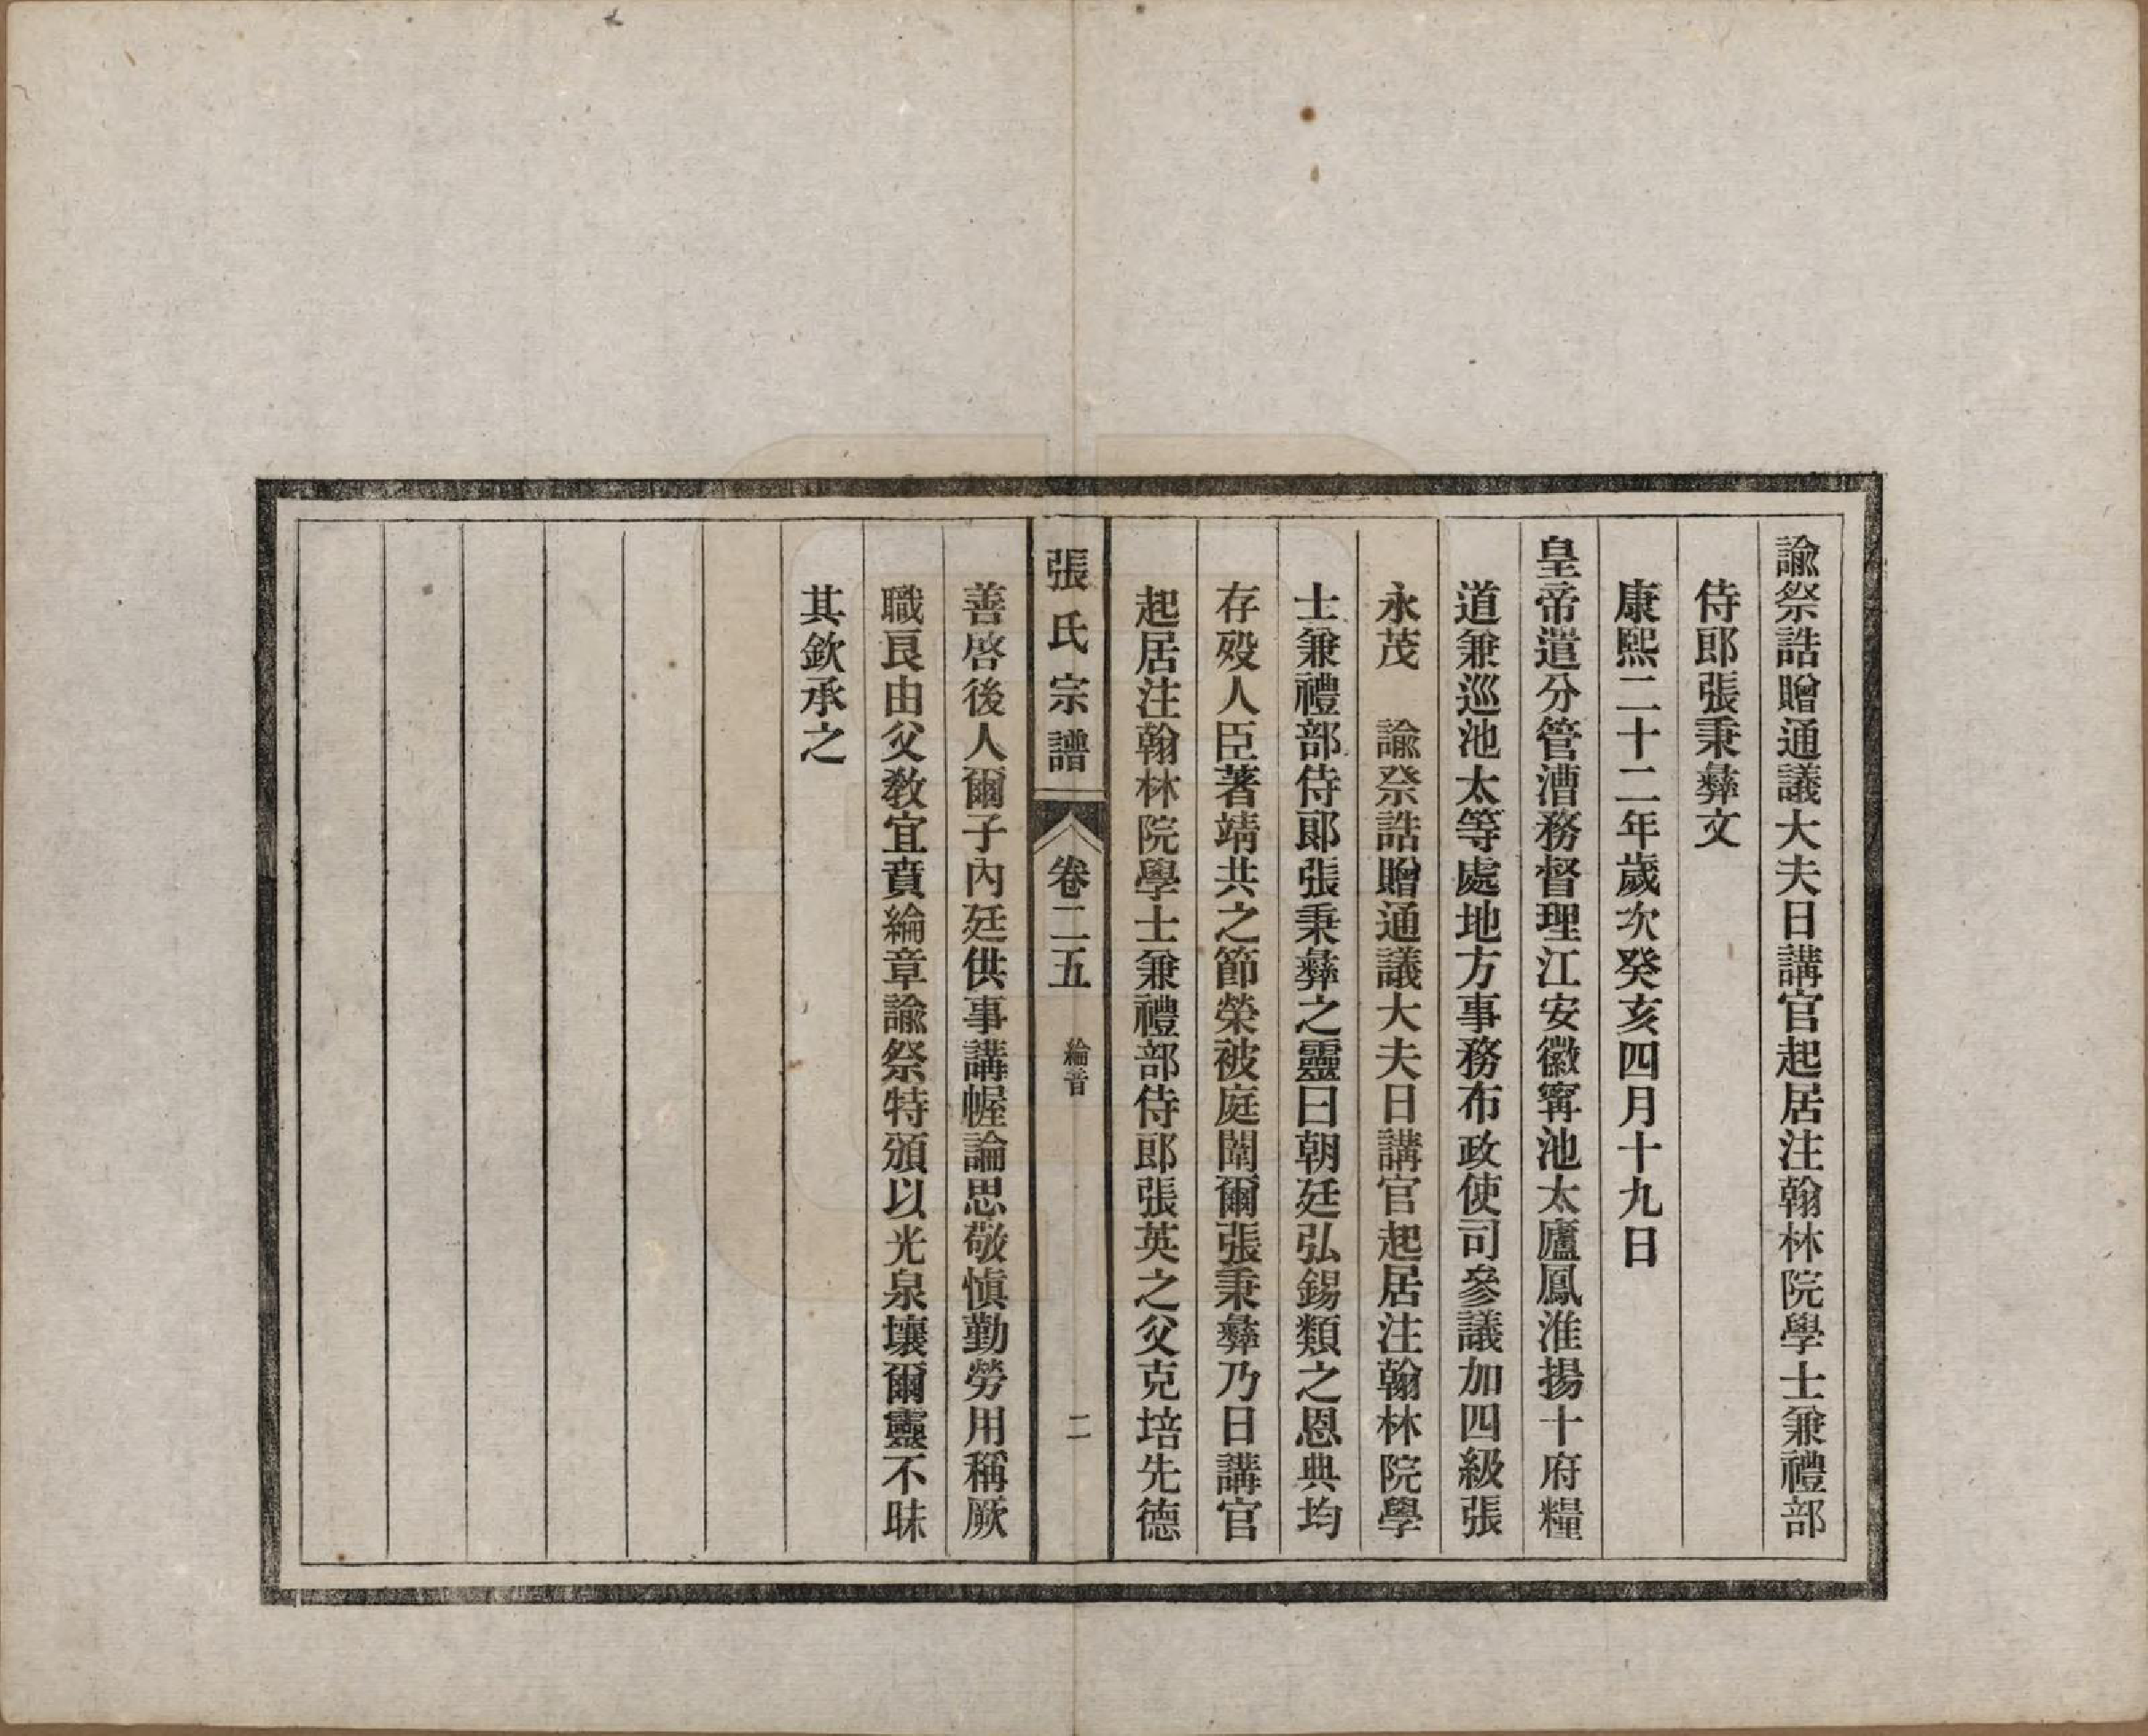 諭祭誥贈通議大夫日講官起居注翰林院學士兼禮部
侍郎張秉彝文
康熙二十二年歲次癸亥四月十九日
皇帝遣分管漕務督理江安徽寧池太廬鳳淮揚十府糧
道兼巡池太等處地方事務布政使司參議加四級張
永茂　諭祭誥贈通議大夫日講官起居注翰林院學
士兼禮部侍郎張秉彝之靈曰朝廷弘錫類之恩典均
存歿人臣著靖共之節榮被庭闈爾張秉彝乃日講官
起居注翰林院學士兼禮部侍郎張英之父克培先德
張氏宗譜
卷二五
綸音
二
善啓後人爾子內廷供事講幄論思敬愼勤勞用稱厥
職良由父教宜賁綸章諭祭特頒以光泉壤爾靈不昧
其欽承之